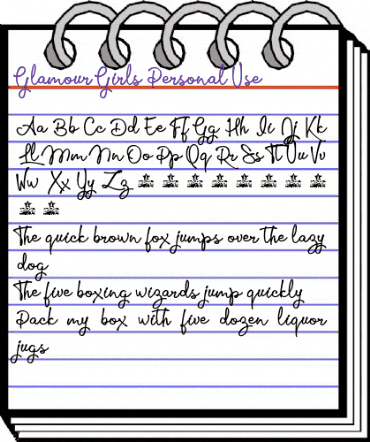 Glamour Girls Personal Use
Aa Bb Cc Dd Ee Ff Gg Hh Ii Jj Kk
Ll Mm Nn Oo Pp Qq Rr Ss Tt Uu Vv
Ww Xx Yy Zz
The quick brown fox jumps over the lazy
dog
The five boxing wizards jump quickly
Pack my box with five dozen liquor
jugs